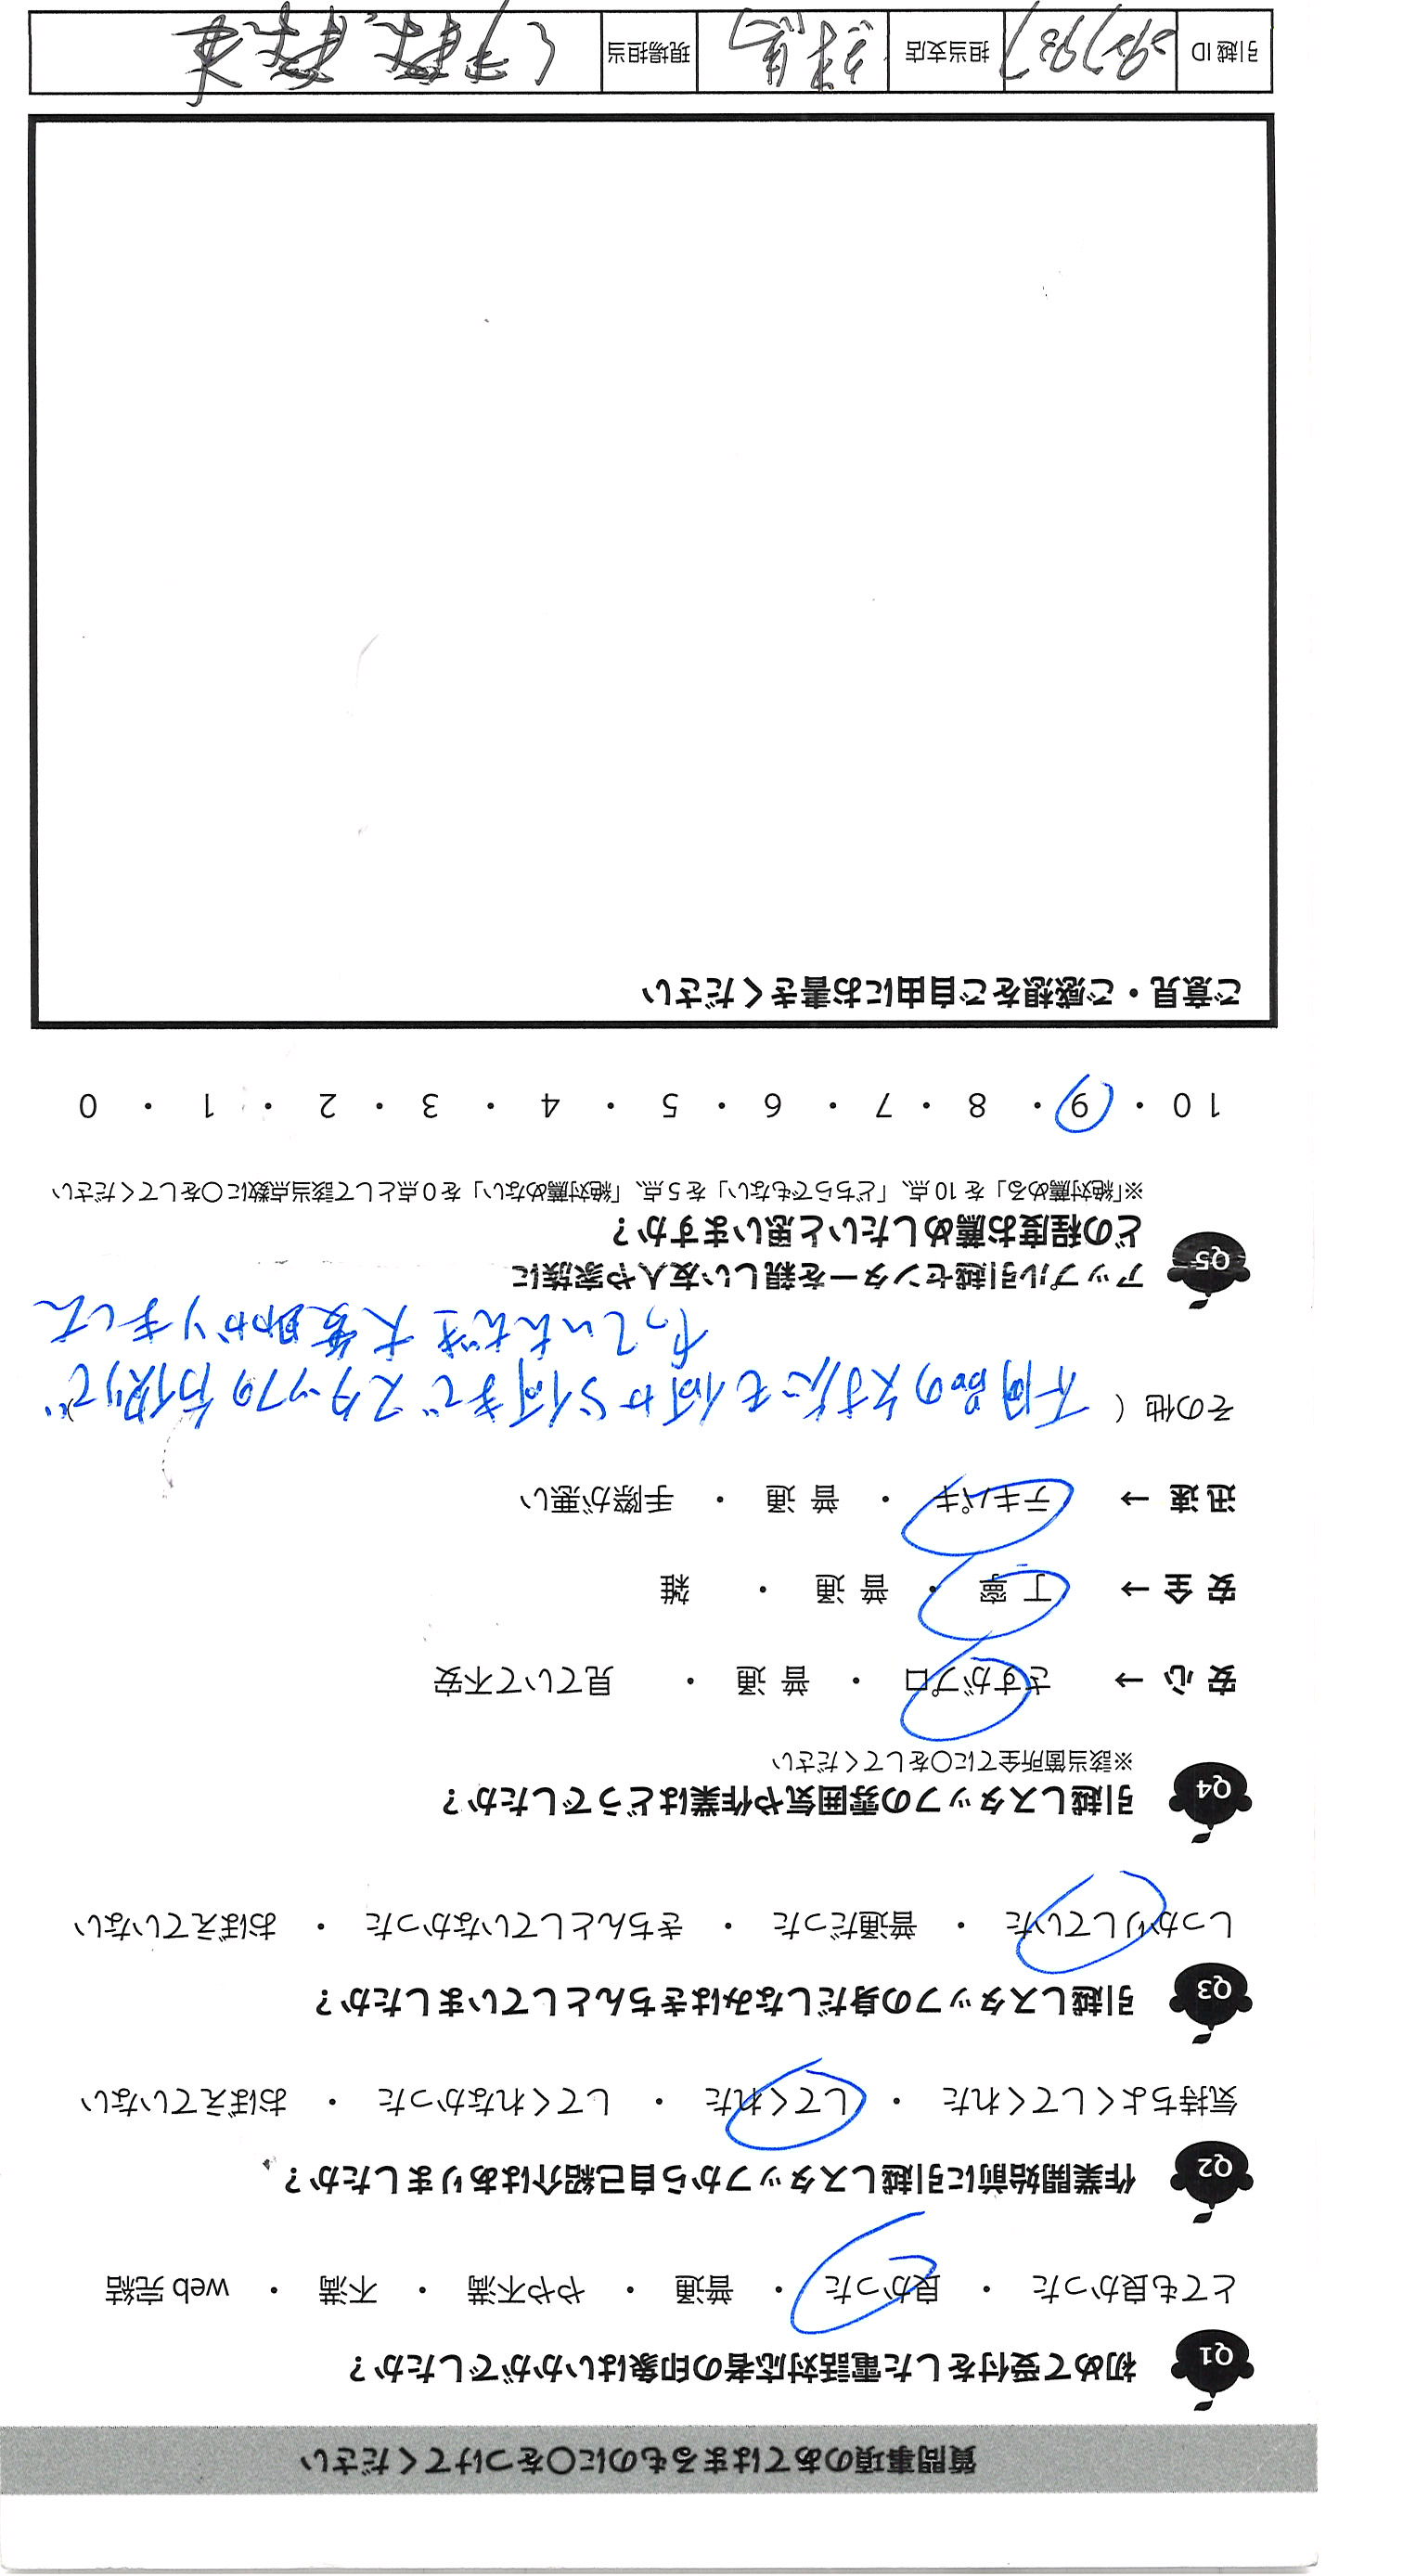 質問事項のあてはまるものに〇をつけてください
Q1 初めて受付をした電話対応者の印象はいかがでしたか?
とても良かった ・ 良かった ・ 普通 ・ やや不満 ・ 不満 ・ web 完結
Q2 作業開始前に引越しスタッフから自己紹介はありましたか?
気持ちよくしてくれた ・ してくれた ・ してくれなかった ・ おぼえていない
Q3 引越しスタッフの身だしなみはきちんとしていましたか?
しっかりしていた ・ 普通だった ・ きちんとしていなかった ・ おぼえていない
Q4 引越しスタッフの雰囲気や作業はどうでしたか?
※該当箇所全てに〇をしてください
安 心 → さすがプロ ・ 普 通 ・ 見ていて不安
安 全 → 丁 寧 ・ 普 通 ・ 雑
迅 速 → テキパキ ・ 普 通 ・ 手際が悪い
その他 ( 不用品の処分も何から何までスタッフの方
やっていただき大変助かりました
Q5 アップル引越センターを親しい友人や家族に
どの程度お薦めしたいと思いますか?
※「絶対薦める」を 10 点、「どちらでもない」を 5 点、「絶対薦めない」を 0 点として該当点数に〇をしてください
10 ・ 9 ・ 8 ・ 7 ・ 6 ・ 5 ・ 4 ・ 3 ・ 2 ・ 1 ・ 0
ご意見・ご感想をご自由にお書きください
引越 ID 担当支店 現場担当